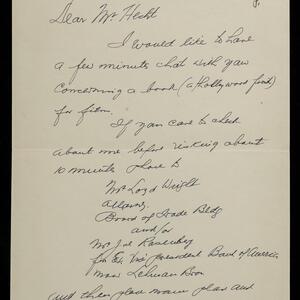 Dear Mr Hecht
I would like to have
a few minutes chat with you
concerning a book (a Hollywood
for film.
If you care to check
about me before risking about
10 minutes phone to
Mr Loyd Wright
attorney
Board of Trade Bldg
and/or
Mr Joe
for Ex Vice president Bank of America
now Lehman Bros
and then phone